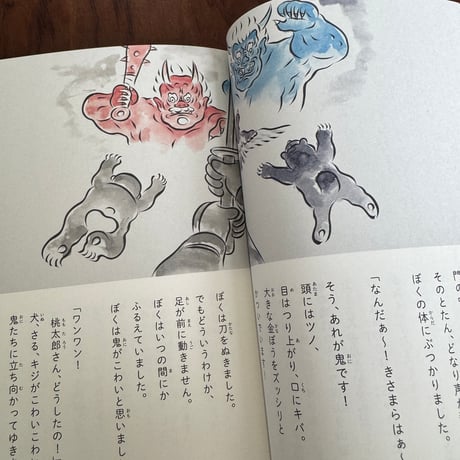 門の
そのとたん、どなり声が
ぼくの体にぶつかりました。
「なんだぁ～！きさまらはぁ～
そう、あれが鬼です！
頭にはツノ、
目はつり上がり、口にキバ。
大きな金ぼうをズッシリと
かついでいます
ぼくは刀をぬきました。
でもどういうわけか、
足が前に動きません。
ぼくはいつの間にか
ふるえていました。
ぼくは鬼がこわいと思いまし
「ワンワン！
桃太郎さん、どうしたの！
犬、さる、キジがこわいこわ
鬼たちに立ち向かってゆき